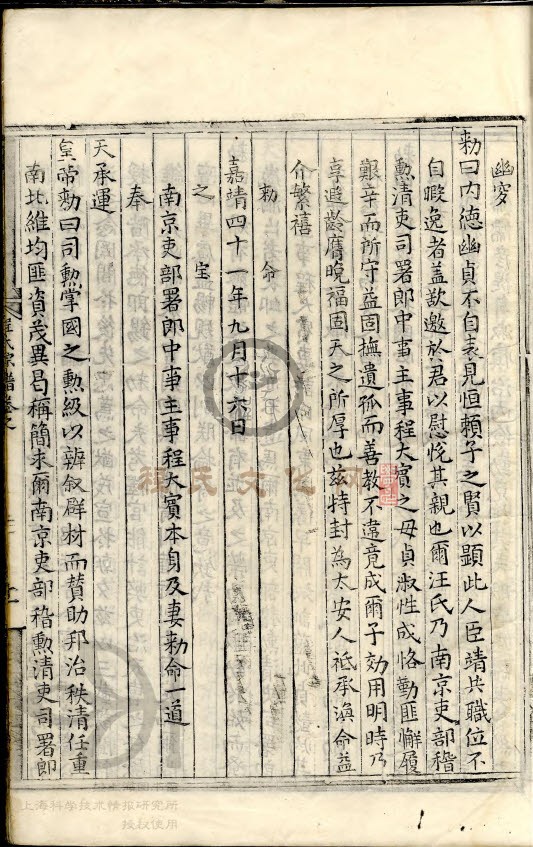 幽穸
敕曰内德幽貞不自表見恒賴子之賢以顯此人臣靖共職位不
自暇逸者盖欲邀於君以慰悅其親也爾汪氏乃南京吏部稽
勲清吏司署郎中事主事程大賓之母貞淑性成恪勤匪懈履
艱辛而所守益固撫遺孤而善教不違竟成爾子効用明時乃
享遐齡膺晚福固天之所厚也兹特封為太安人祗承渙命益
介繁禧
敕命
嘉靖四十一年九月十六日
之宝
南京吏部署郎中事主事程大賓本身及妻敕命一道
奉
天承運
皇帝敕曰司勲掌國之勲級以辨叙群材而賛助邦治秩清任重
南北維均匪資茂異曷稱簡求爾南京吏部稽勲清吏司署郎
程氏宗譜卷之
程氏文化网
上海科学技术情报研究所
授权使用